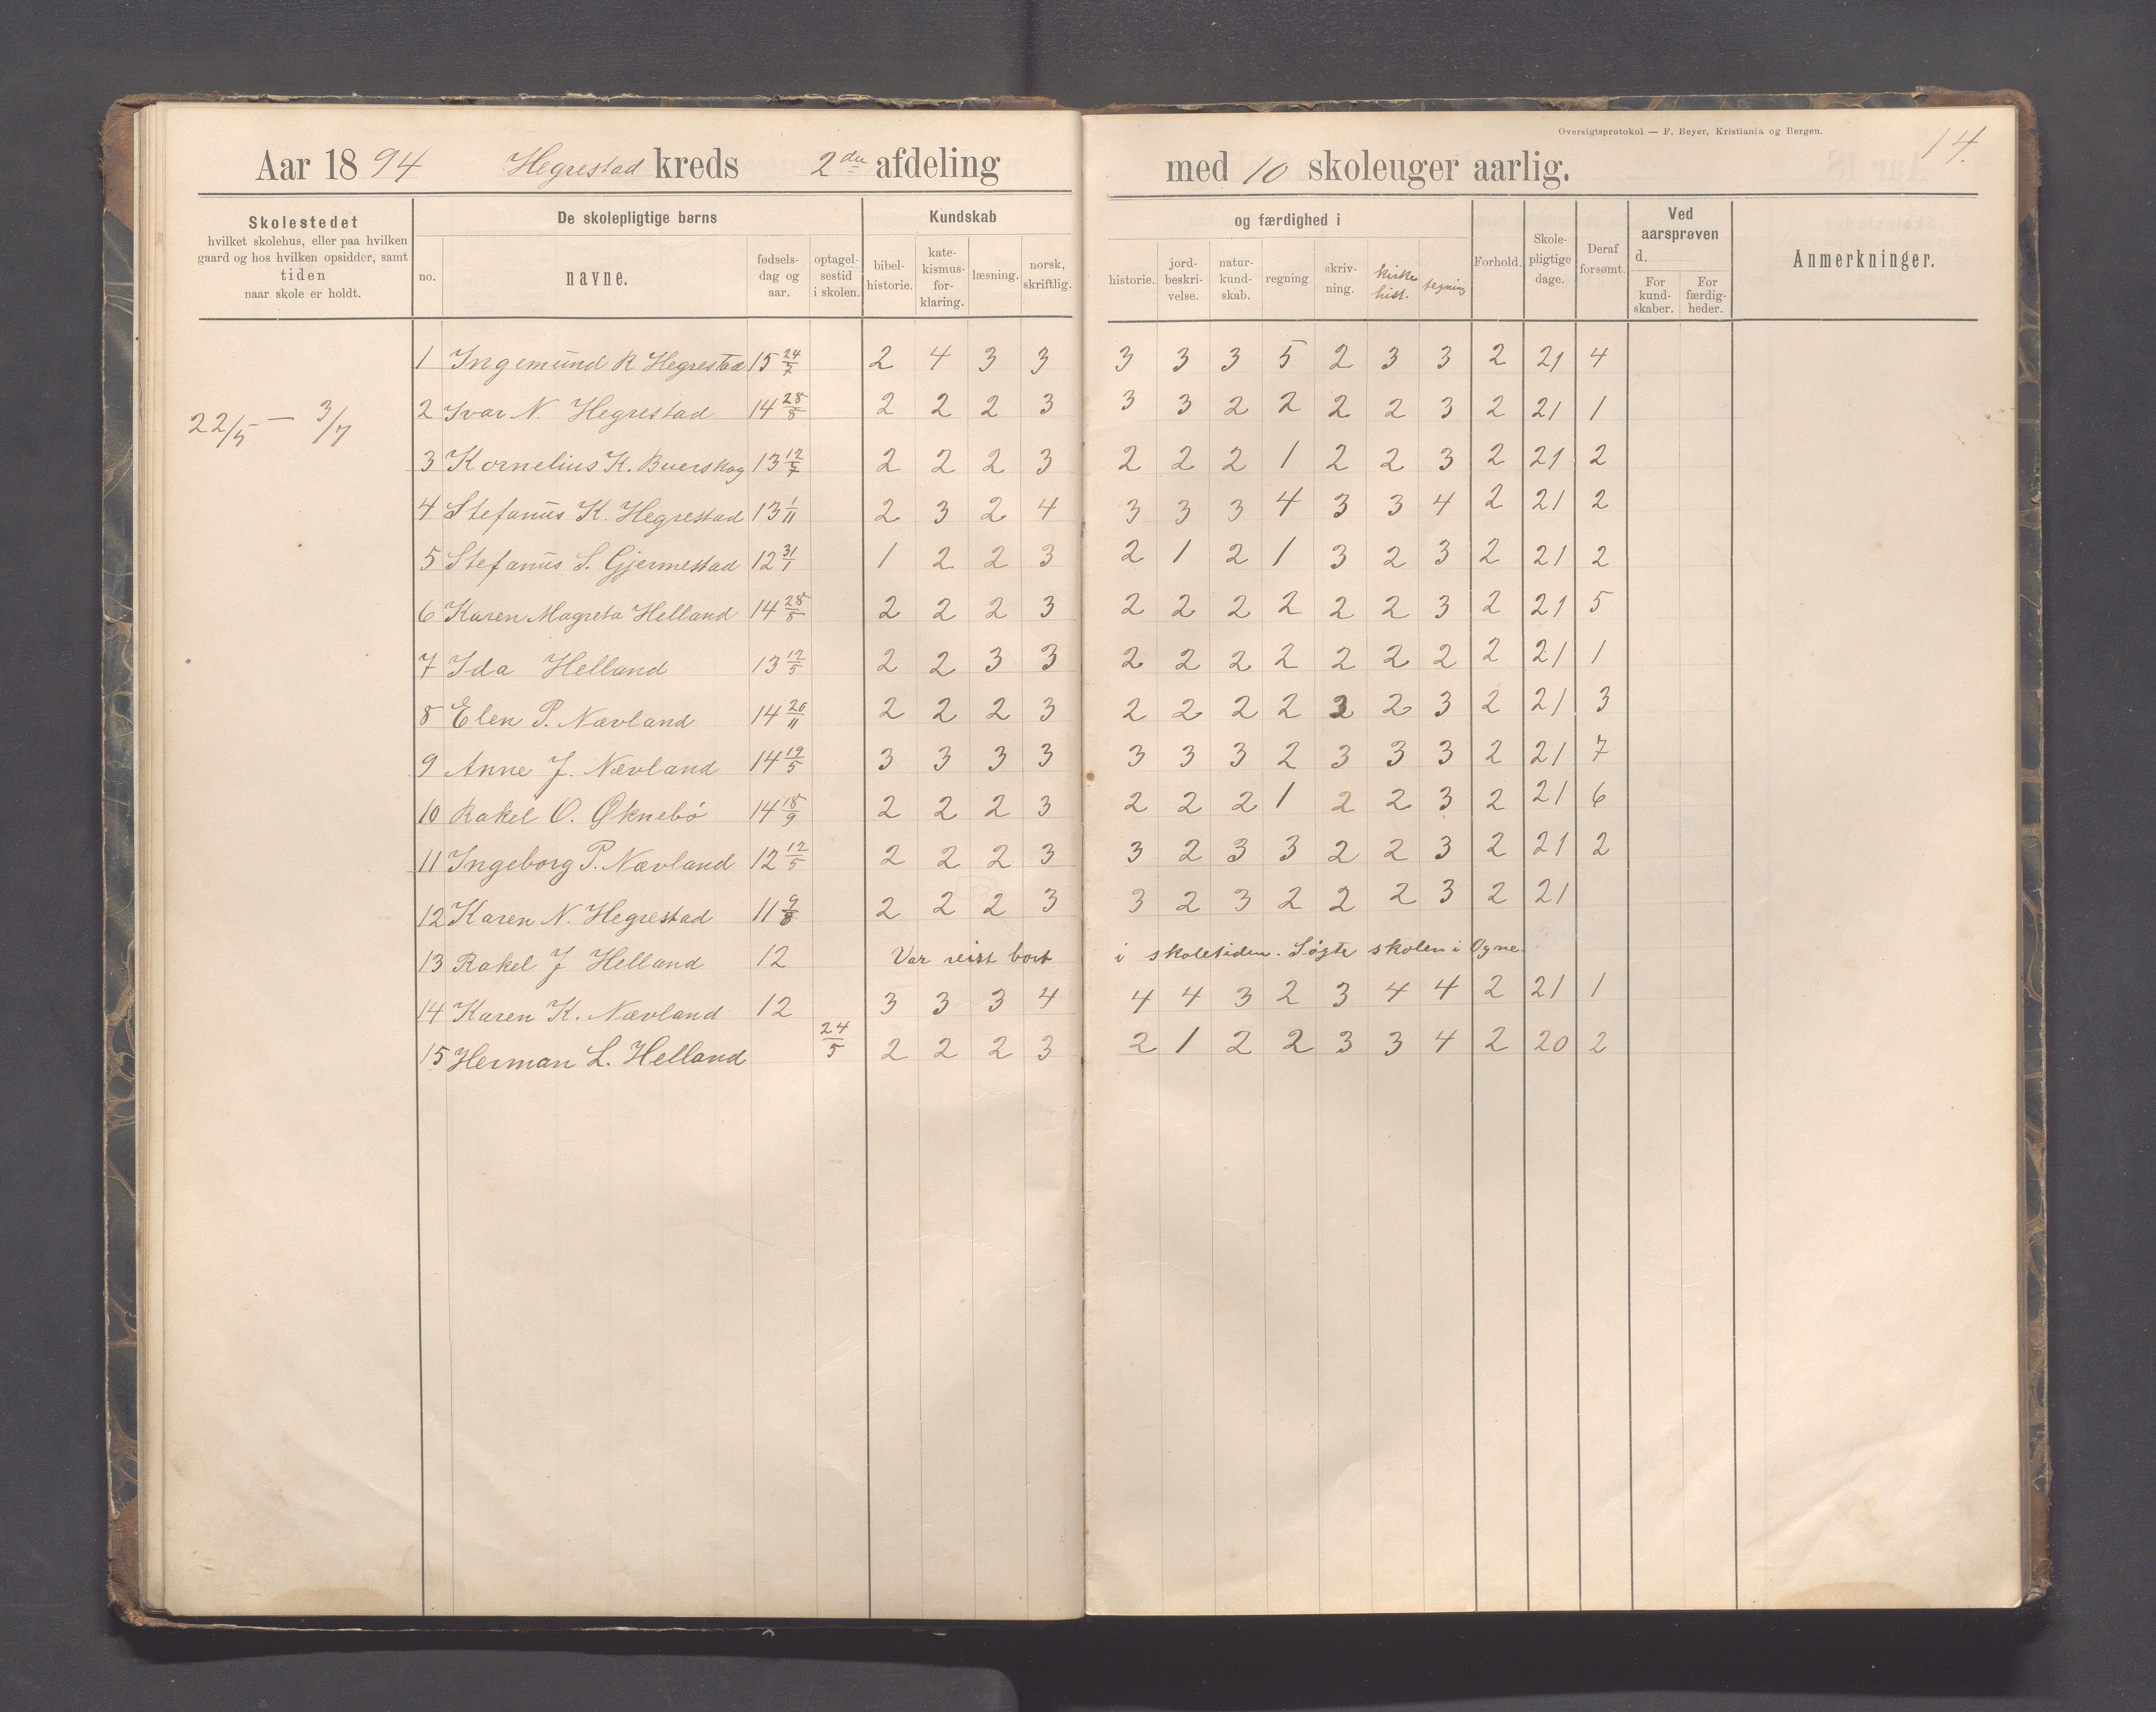 Oversigtsprotokol — F. Beyer, Kristiania og Bergen.
14.
Aar 1894 Hegrestad kreds 2den afdeling med 10 skoleuger aarlig.
Skolestedet
hvilket skolehus, eller paa hvilken
gaard og hos hvilken opsidder, samt
tiden
naar skole er holdt.
De skolepligtige børns
no. navne. fødsels-dag og aar. optagel-sestid i skolen.
Kundskab og færdighed i
bibel-historie. kate-kismus-for-klaring. læsning. norsk, skriftlig. historie. jord-beskri-velse. natur-kund-skab. regning skriv-ning. kirke hist. tegning
Forhold. Skole-pligtige dage. Deraf forsømt.
Ved aarsprøven d.
For kund-skaber. For færdig-heder.
Anmerkninger.
22/5 — 3/7
1 Ingemund R Hegrestad 15 24/7 2 4 3 3 3 3 3 5 2 3 3 2 21 4
2 Ivar N. Hegrestad 14 28/8 2 2 2 3 3 3 2 2 2 2 3 2 21 1
3 Kornelius K. Buerskog 13 12/7 2 2 2 3 2 2 2 1 2 2 3 2 21 2
4 Stefanus K. Hegrestad 13 1/11 2 3 2 4 3 3 3 4 3 3 4 2 21 2
5 Stefanus S. Gjermestad 12 31/1 1 2 2 3 2 1 2 1 3 2 3 2 21 2
6 Karen Magreta Helland 14 28/8 2 2 2 3 2 2 2 2 2 2 3 2 21 5
7 Ida Helland 13 12/5 2 2 3 3 2 2 2 2 2 2 2 2 21 1
8 Elen P. Nævland 14 20/11 2 2 2 3 2 2 2 2 3 2 3 2 21 3
9 Anne J. Nævland 14 19/5 3 3 3 3 3 3 3 2 3 3 3 2 21 7
10 Rakel O. Øknebö 14 18/9 2 2 2 3 2 2 2 1 2 2 3 2 21 6
11 Ingeborg P. Nævland 12 12/5 2 2 2 3 3 2 3 3 2 2 3 2 21 2
12 Karen N. Hegrestad 11 9/8 2 2 2 3 3 2 3 2 2 2 3 2 21
13 Rakel J Helland 12 Var reist bort i skoletiden. Søgte skolen i Ogne
14 Karen K. Nævland 12 3 3 3 4 4 4 3 2 3 4 4 2 21 1
15 Herman L. Helland 24/5 2 2 2 3 2 1 2 2 3 3 4 2 20 2